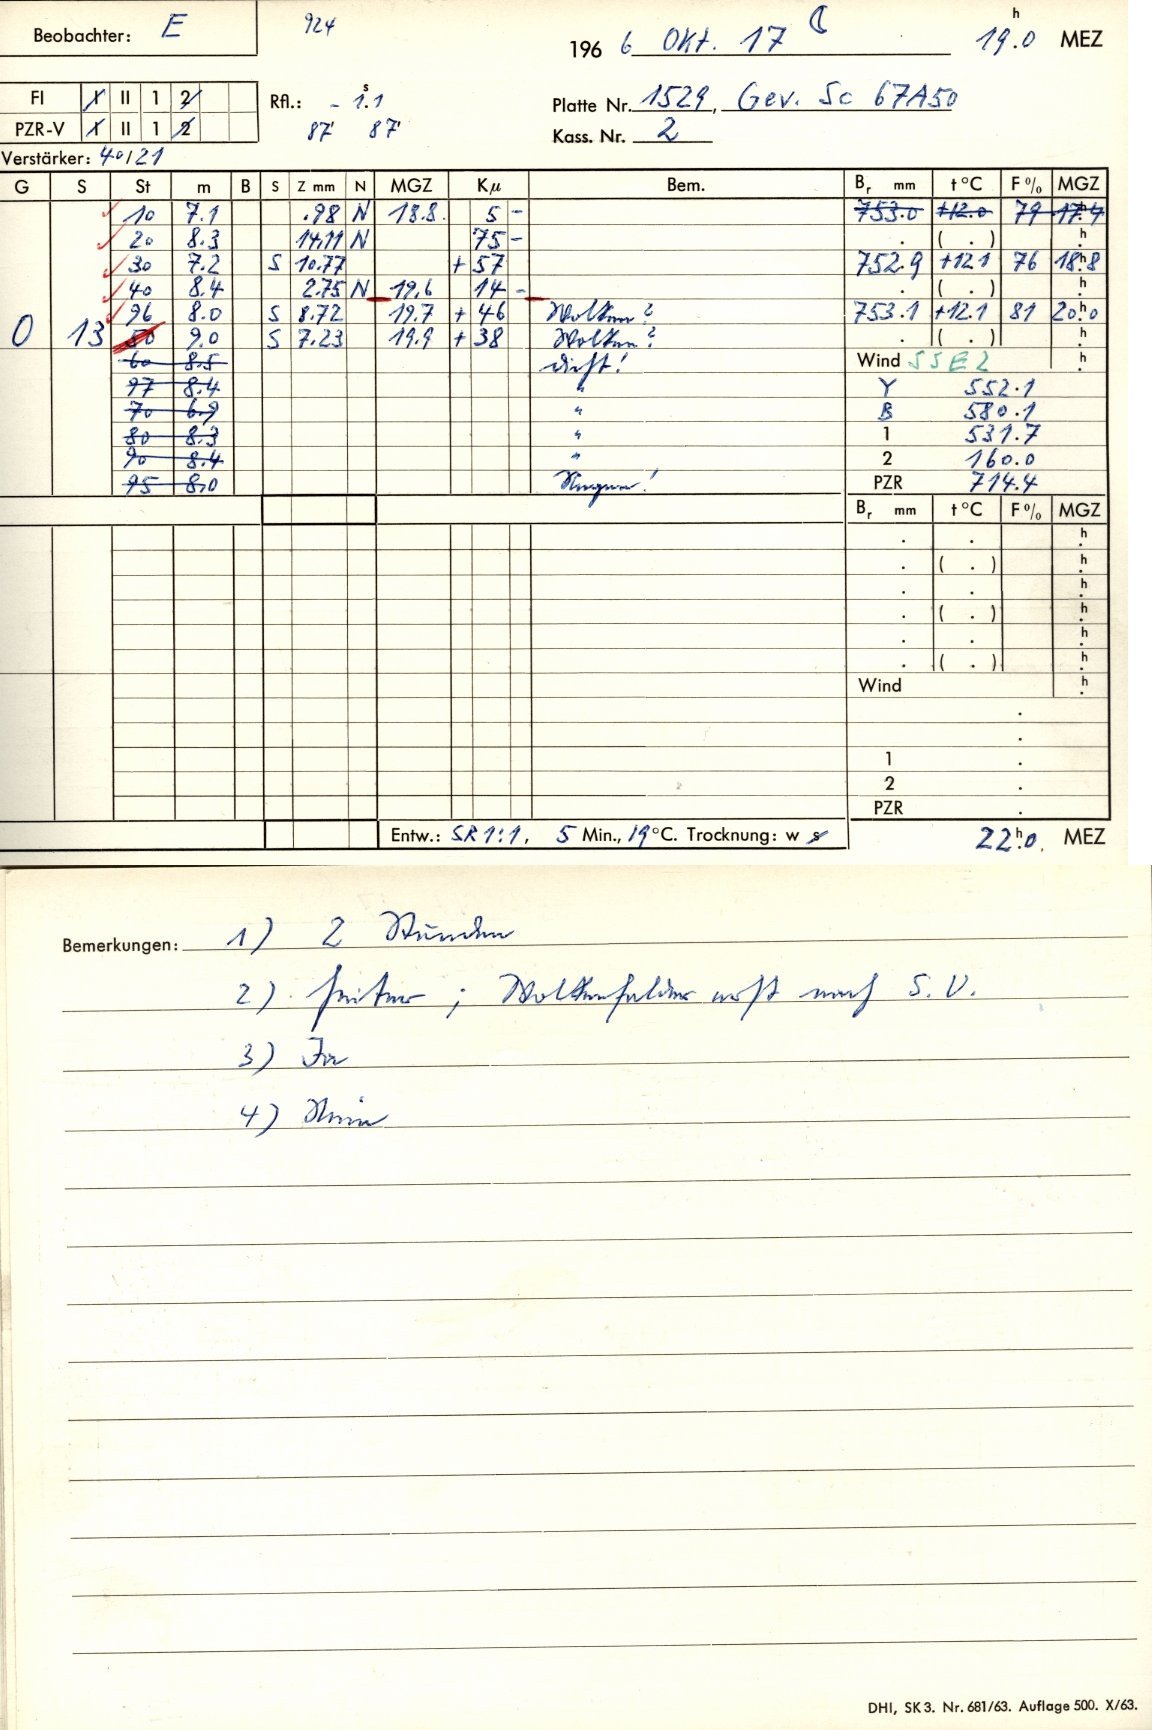 Beobachter: E
924
196 6 Okt. 17 ☾ 19.ʰ0 MEZ
FI I II 1 2
PZR-V I II 1 2
Rfl.: - 1.ˢ1
87' 87'
Platte Nr. 1529, Gev. Sc 67A50
Kass. Nr. 2
Verstärker: 40/21
G S St m B S Z mm N MGZ Kμ Bem. Br mm t °C F % MGZ
10 7.1 .98 N 18.8 5 - 753.0 +12.0 79 17.4
20 8.3 14.11 N 75 - . ( . ) h
30 7.2 S 10.77 + 57 752.9 +12.1 76 18.ʰ8
40 8.4 2.75 N 19.6 14 - . ( . ) h
96 8.0 S 8.72 19.7 + 46 Wolken? 753.1 +12.1 81 20.ʰ0
0 13 50 9.0 S 7.23 19.9 + 38 Wolken? . ( . ) h
60 8.5 dicht! Wind SSE 2 h
97 8.4 " Y 552.1
70 6.9 " B 580.1
80 8.3 " 1 531.7
90 8.4 " 2 160.0
95 8.0 PZR 714.4
Br mm t °C F % MGZ
. . h
. ( . ) h
. . h
. ( . ) h
. . h
. ( . ) h
Wind h
.
.
1 .
2 .
PZR .
Entw.: SR 1:1, 5 Min., 19 °C. Trocknung: w s
22.ʰ0 MEZ
Bemerkungen: 1) 2 Stunden
2) heiter ; Wolkenfelder erst nach S.U.
3) Ja
4) Nein
DHI, SK 3. Nr. 681/63. Auflage 500. X/63.